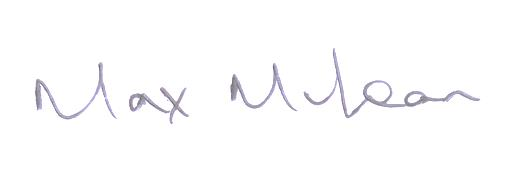 Max McLean